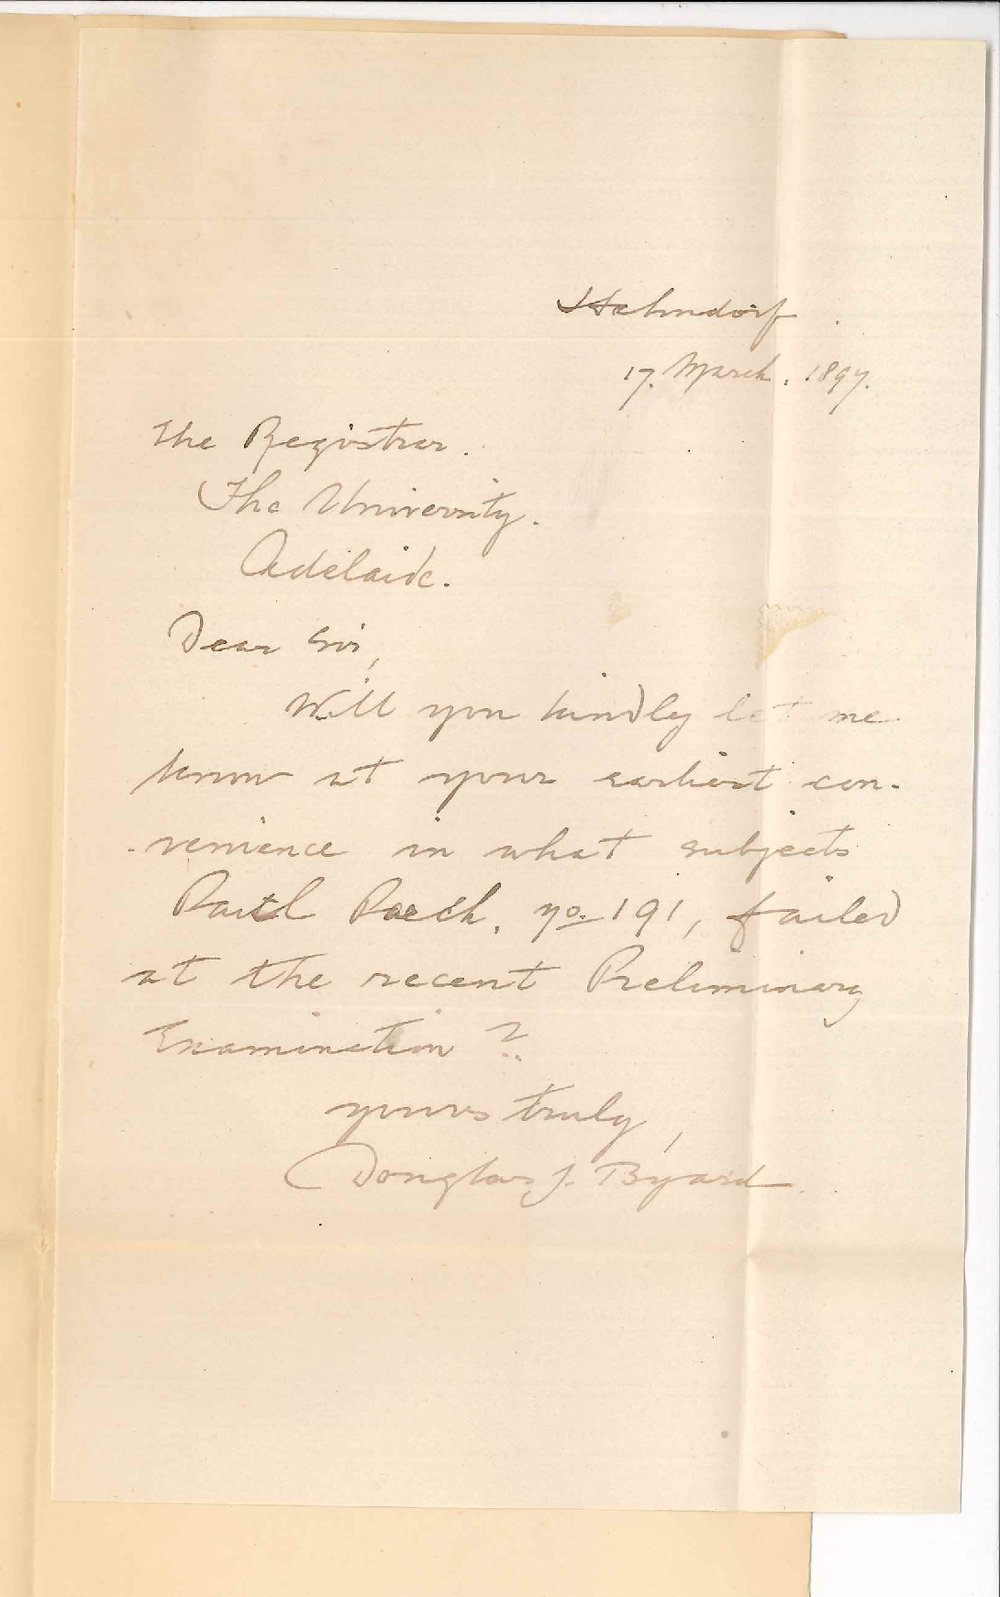 Hahndorf
17. March. 1897.
The Registrar.
The University.
Adelaide.
Dear Sir,
Will you kindly let me
know at your earliest con-
-venience in what subjects
Paul Paech, No. 191, failed
at the recent Preliminary
Examination?
yours truly,
Douglas J. Byard